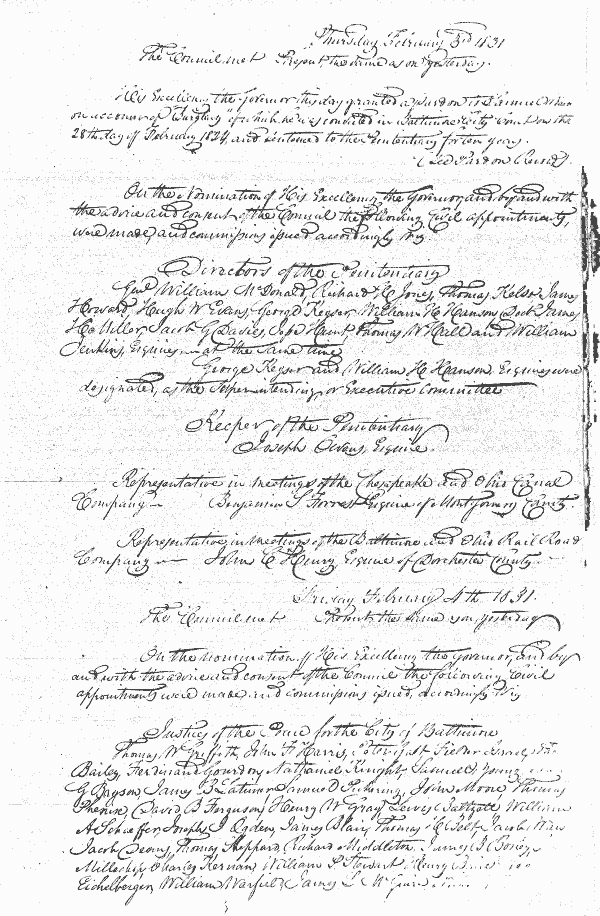 Thursday February 3rd 1831
The Council met Present the same as on yesterday.
His Excellency the Governor this day granted a pardon to Samuel
on account of Burglary of which he was convicted in Baltimore City Court on the
28th day of February 1824, and sentenced to the Penitentiary for ten years.
(See Pardon Record).
On the Nomination of His Excellency the Governor, and by and with
the advice and consent of the Council the following Civil appointments,
were made, and commissions issued accordingly Viz
Directors of the Penitentiary
Genl. William McDonald, Richard H Jones, Thomas Kelso, James
Howard, Hugh W Evans, George Keyser, William H Hanson, Doct. James
H Miller, Jacob G Davies, Hunt, Thomas W Hall and William
Jenkins, Esquires at the same time
George Keyser and William H Hanson Esquires were
designated, as the Superintending or Executive Committee
Keeper of the Penitentiary
Joseph Owens, Esquire.
Representative in meetings of the Chesapeake and Ohio Canal
Company — Benjamin S Forrest Esquire of Montgomery County.
Representative in meetings of the Baltimore and Ohio Rail Road
Company — John C Henry Esquire of Dorchester County.
Friday February 4th 1831.
The Council met Present the same as on yesterday
On the nomination of His Excellency the Governor, and by
and with the advice and consent of the Council the following Civil
appointments were made and commissions issued, accordingly Viz
Justices of the Peace for the City of Baltimore
Thomas W Griffith, John F Harris,
Bailey, Ferdinand Gourdon, Nathaniel Knight, Samuel Young
G Bryson, James B Latimer Samuel Pickering, John Moore Thomas
Phenix, David B Ferguson, Henry W Gray, Lewis William
A Schaeffer, Joseph J Ogden, James Blair, Thomas Jacob
Jacob Deems, Thomas Sheppard, Richard Middleton, James J
Charles Kernan, William P Stewart Henry
Eichelberger, William Warfield, James L